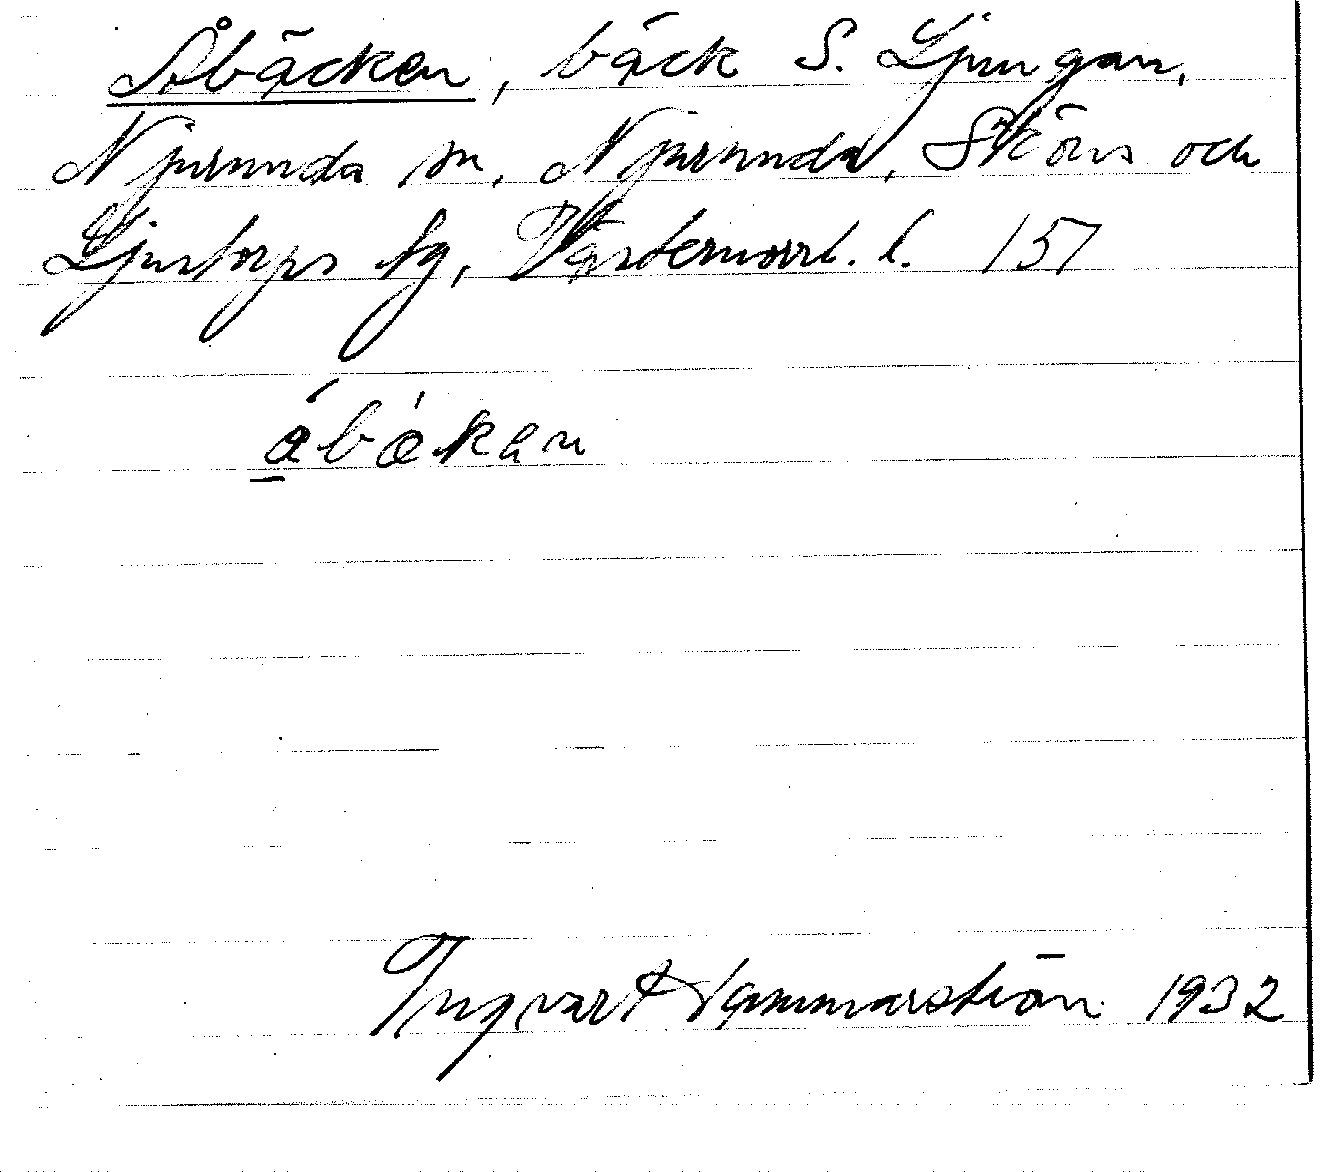 Åbäcken, bäck S. Ljungan,
Njurunda sn, Njurunda, Sköns och
Ljustorps tg, Västernorrl. l. 157
åbäkan
Ingvar Hammarström 1932